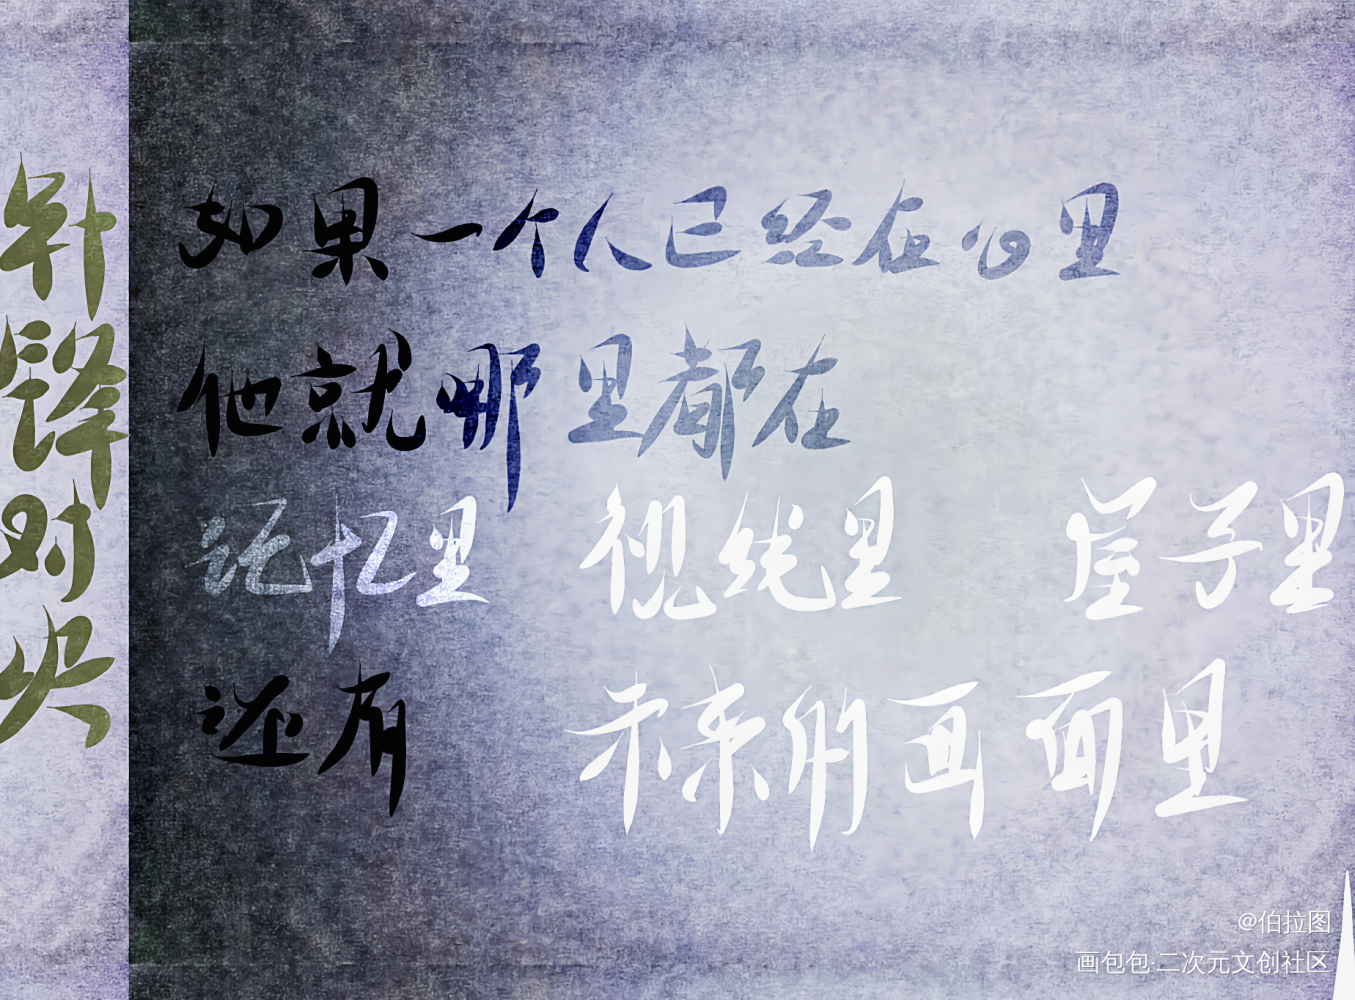 针锋对决
如果一个人已经在心里
他就哪里都在
记忆里 视线里 屋子里
还有 未来的画面里
@伯拉图
画包包·二次元文创社区